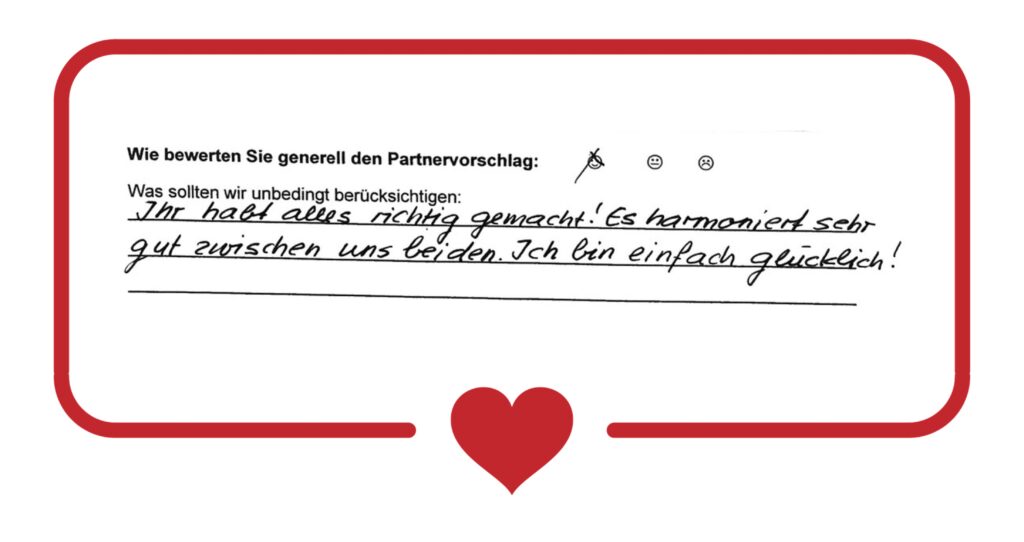 Wie bewerten Sie generell den Partnervorschlag:
Was sollten wir unbedingt berücksichtigen:
Ihr habt alles richtig gemacht! Es harmoniert sehr
gut zwischen uns beiden. Ich bin einfach glücklich!